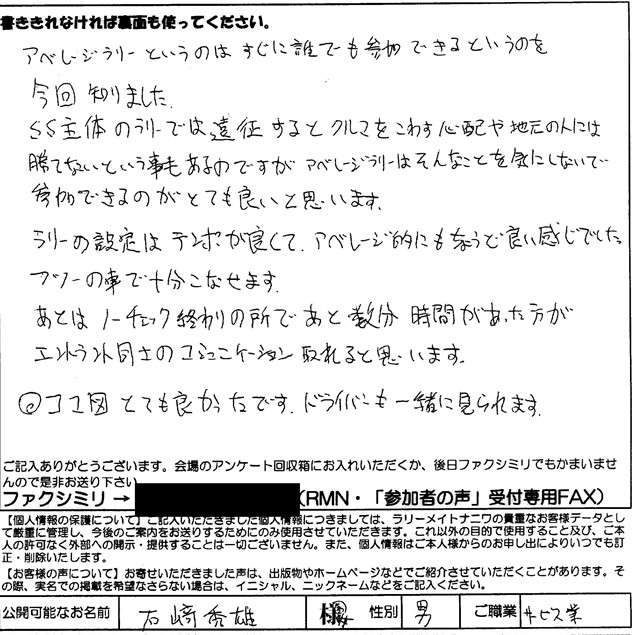 書ききれなければ裏面も使ってください。
アベレージラリーというのはすぐに誰でも参加できるというのを
今回知りました。
SS主体のラリーでは遠征するとクルマをこわす心配や地元の人には
勝てないという事もあるのですがアベレージラリーはそんなことを気にしないで
参加できるのがとても良いと思います。
ラリーの設定はテンポが良くて、アベレージ的にもちょうど良い感じでした。
フツーの車で十分こなせます。
あとはノーチェック終わりの所であと数分時間があった方が
エントラント同士のコミュニケーション取れると思います。
◎コマ図とても良かったです。ドライバーも一緒に見られます。
ご記入ありがとうございます。会場のアンケート回収箱にお入れいただくか、後日ファクシミリでもかまいませ
んので是非お送り下さい
ファクシミリ→ (RMN・「参加者の声」受付専用FAX)
【個人情報の保護について】ご記入いただきました個人情報につきましては、ラリーメイトナニワの貴重なお客様データとし
て厳重に管理し、今後のご案内をお送りするためにのみ使用させていただきます。これ以外の目的で使用すること及び、ご本
人の許可なく外部への開示・提供することは一切ございません。また、個人情報はご本人様からのお申し出によりいつでも訂
正・削除いたします。
【お客様の声について】お寄せいただきました声は、出版物やホームページなどでご紹介させていただくことがあります。そ
の際、実名での掲載を希望なさらない場合は、イニシャル、ニックネームなどをご記入ください。
公開可能なお名前 石崎秀雄 様 性別 男 ご職業 サービス業